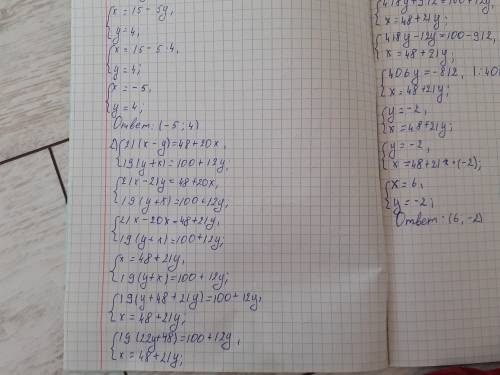 x=15-5y,
y=4,
x=15-5·4,
y=4;
x=-5,
y=4;
Ответ: (-5; 4)
21(x-y)=48+20x,
19(y+x)=100+12y;
21x-21y=48+20x,
19(y+x)=100+12y;
21x-20x=48+21y,
19(y+x)=100+12y;
x=48+21y,
19(y+x)=100+12y;
19(y+48+21y)=100+12y,
x=48+21y;
19(22y+48)=100+12y,
x=48+21y;
418y+912=100+12y
x=48+21y;
418y-12y=100-912,
x=48+21y;
406y=-812, |:40
x=48+21y;
y=-2,
x=48+21y;
y=-2,
x=48+21·(-2);
x=6,
y=-2;
Ответ: (6, -2)